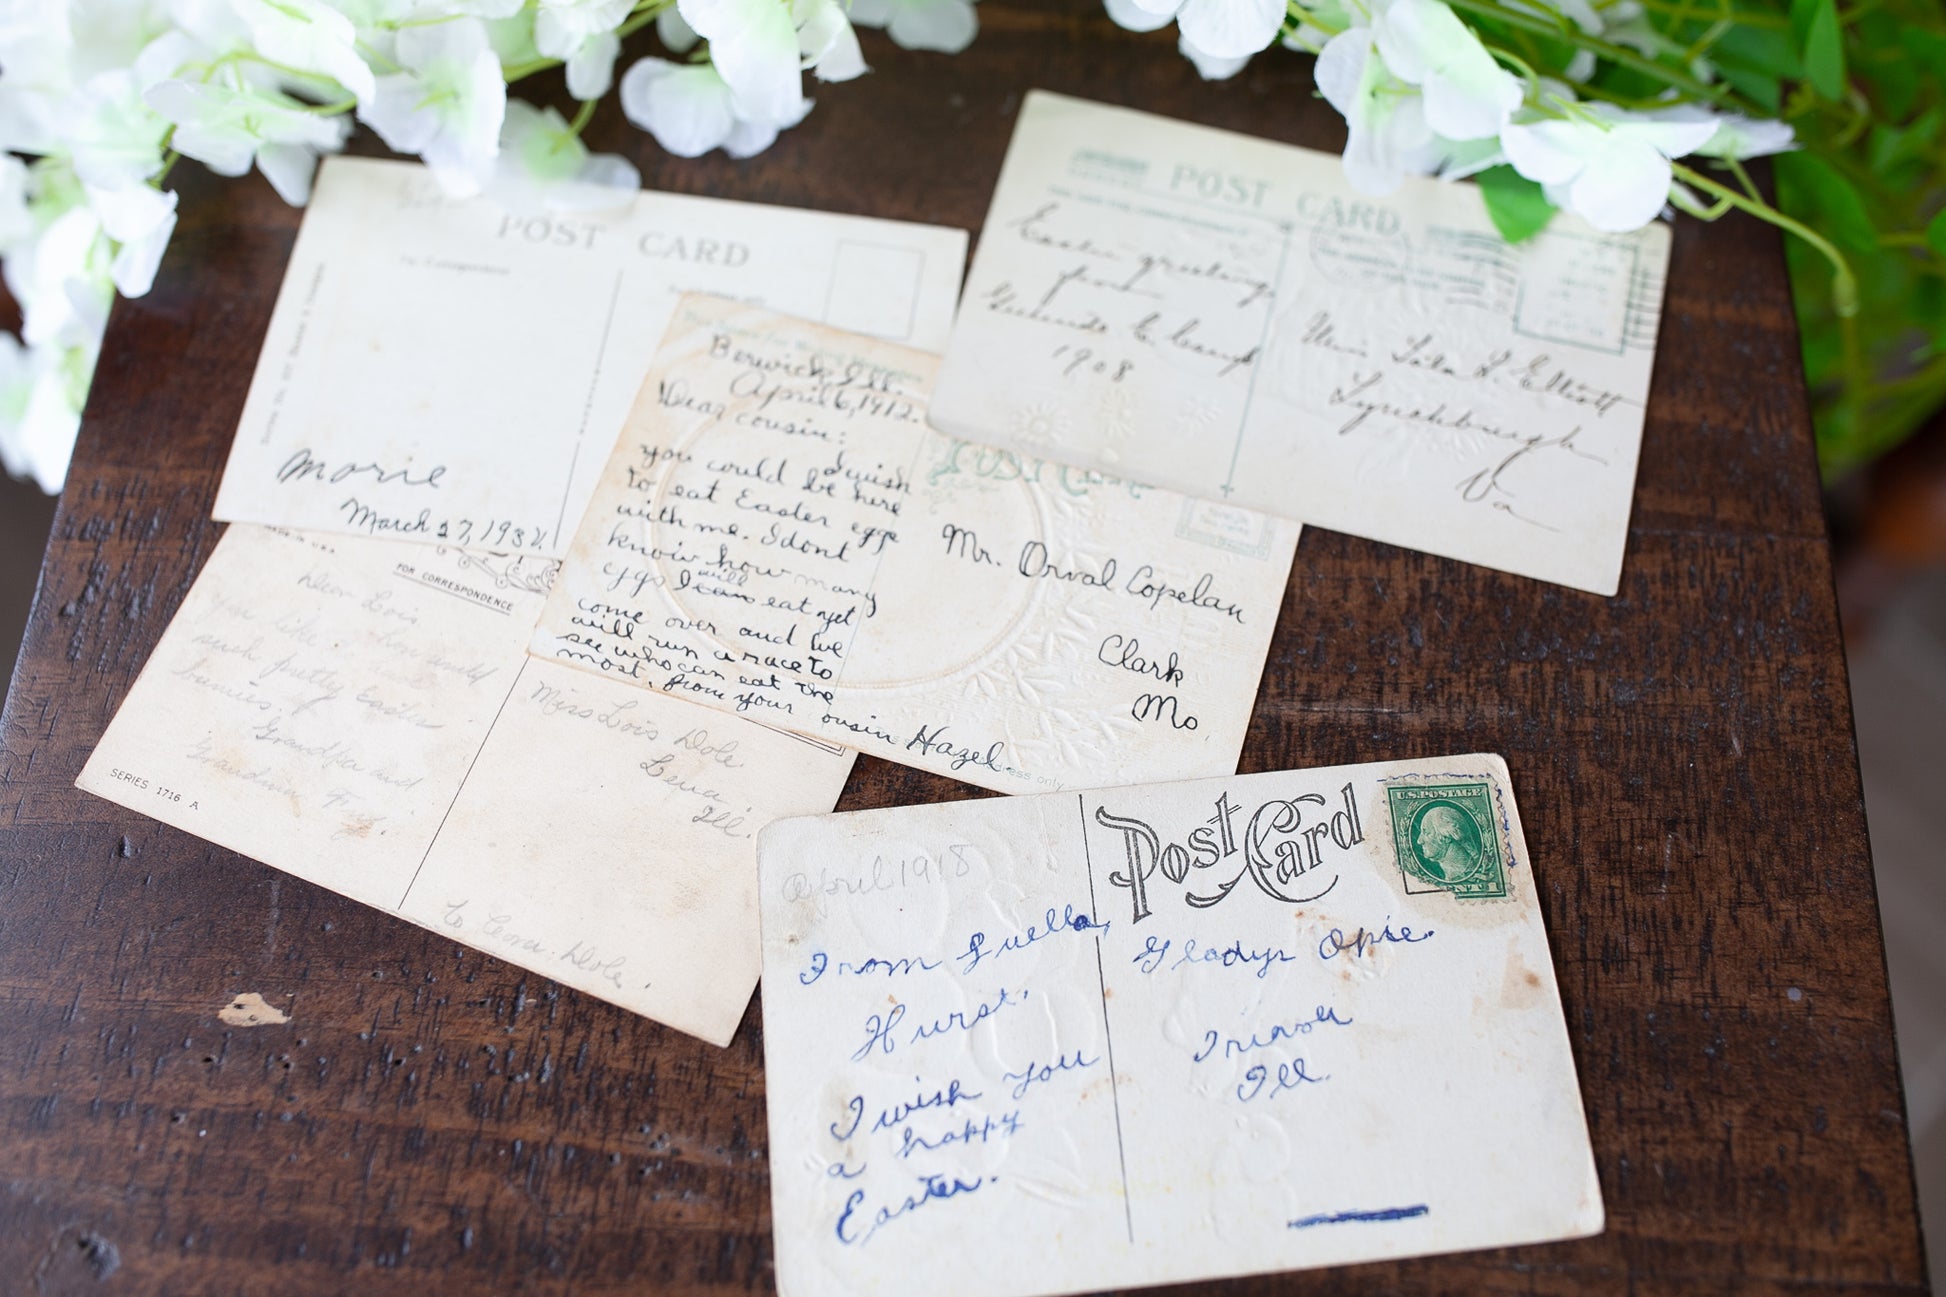 POST CARD
For Correspondence
Marie
March 27, 1932.
POST CARD
Easter greetings
from
1908
Miss Lila L. Elliott
Lynchburgh
Va
Berwick, Ill.
April 6, 1912.
Dear cousin:
I wish
you could be here
to eat Easter eggs
with me. I dont
know how many
eggs I can will eat yet
come over and we
will run a race to
see who can eat the
most. from your cousin Hazel
Post Card
Mr. Orval Copelan
Clark
Mo
address only
MADE IN U.S.A.
FOR CORRESPONDENCE
Dear Lois
You like
such pretty Easter
bunnies.
Grandpa and
Grandma
SERIES 1716 A
Miss Lois Dole
Lena
Ill.
to Cora Dole.
April 1918
From Luella
Hurst.
I wish you
a happy
Easter.
Post Card
U.S. POSTAGE
CENT 1
Gladys Opie.
Trivoli
Ill.